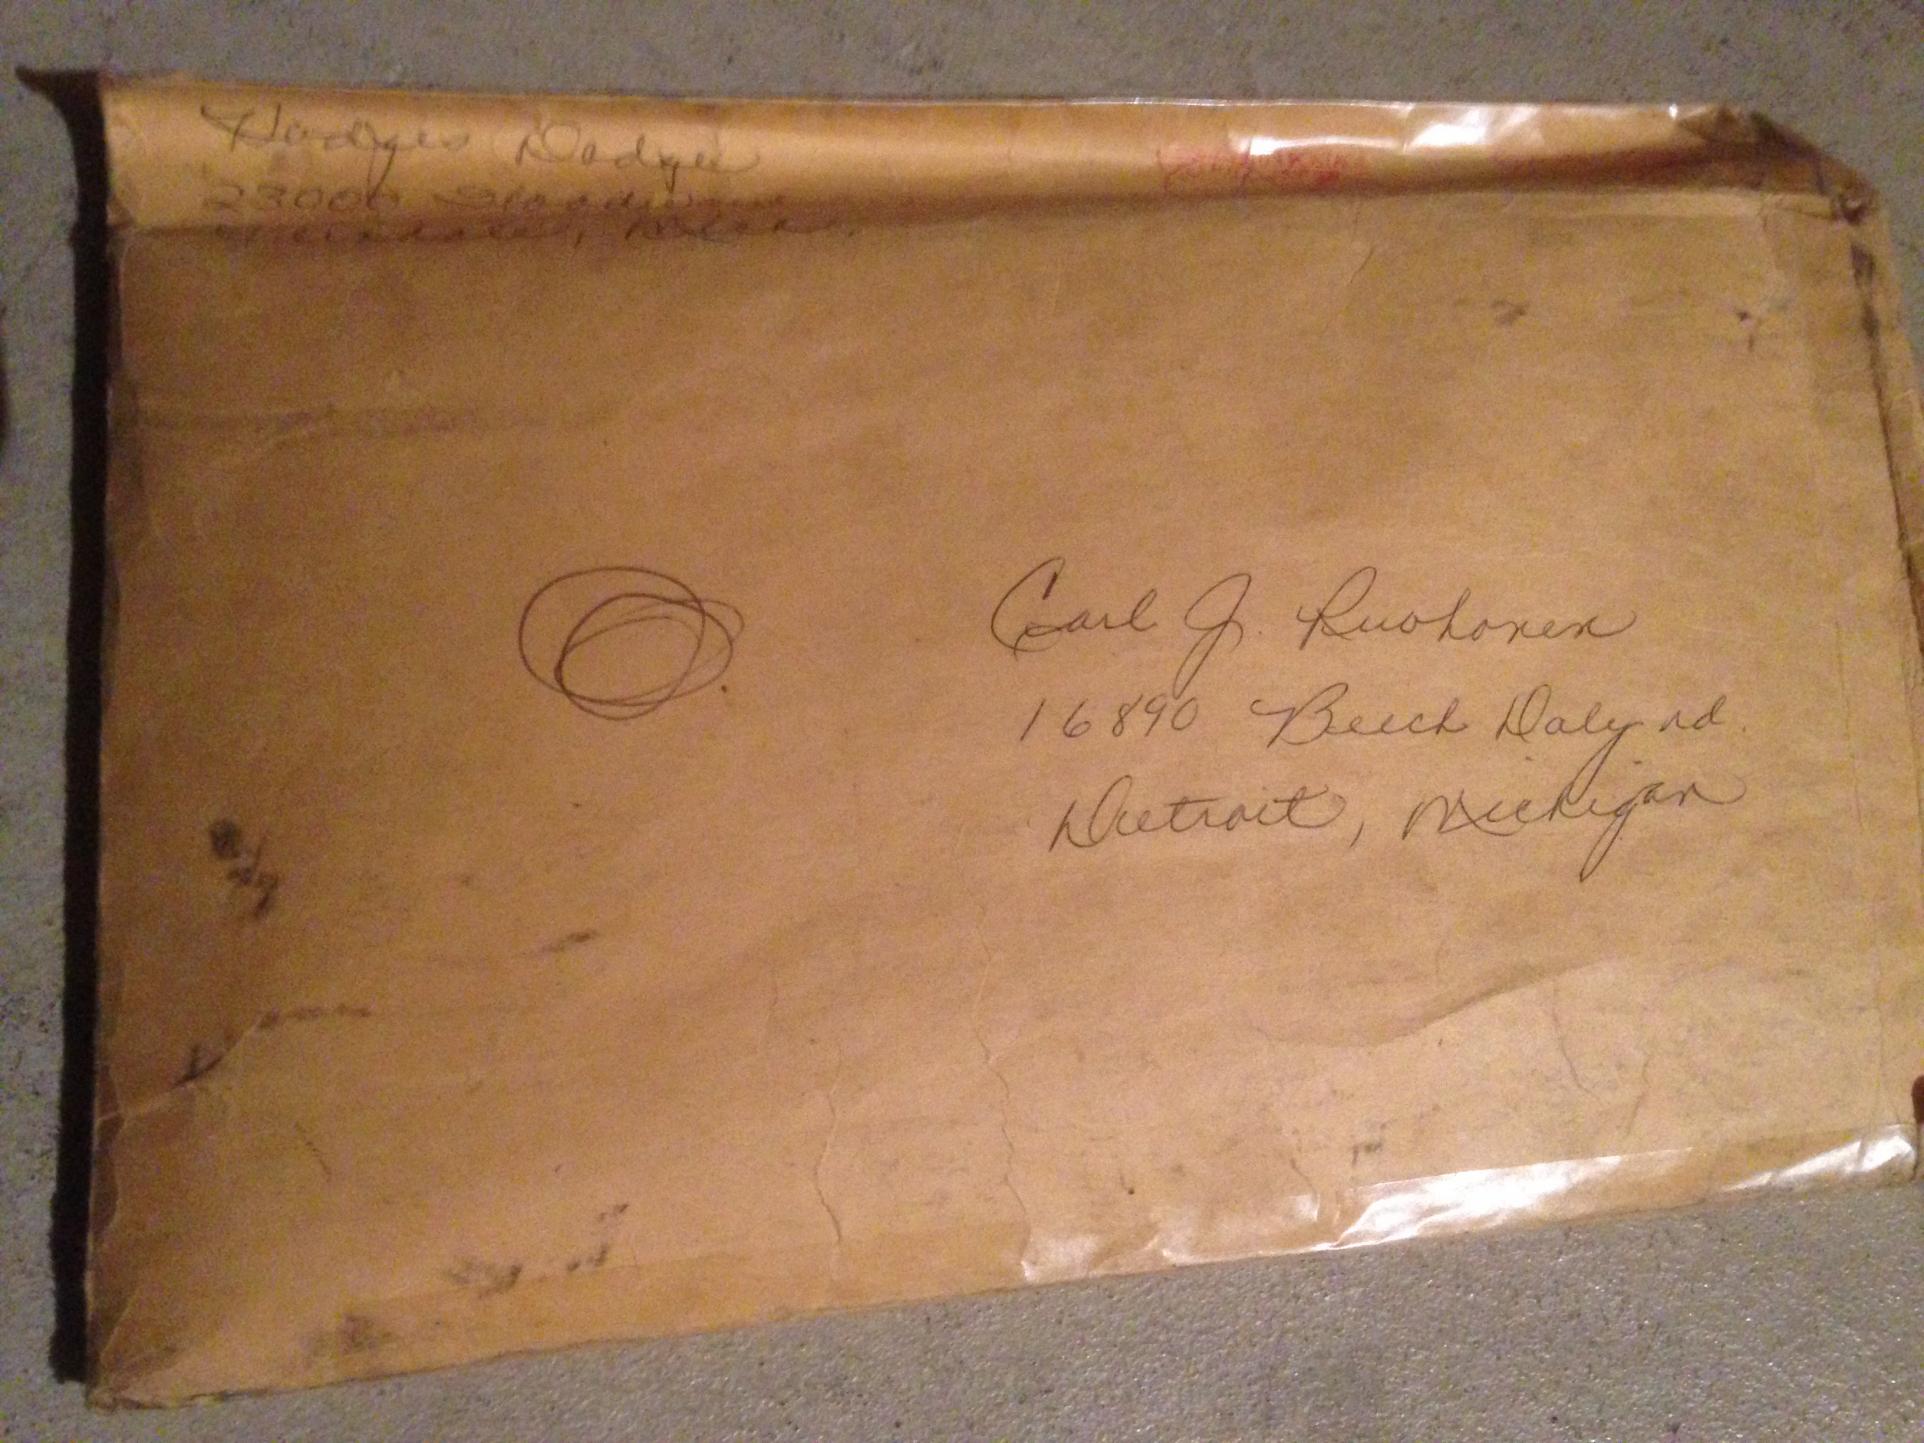 Hodges Dodge
23000 Woodward
Ferndale, Mich.
Carl J. Ruohonen
16890 Beech Daly rd.
Detroit, Michigan